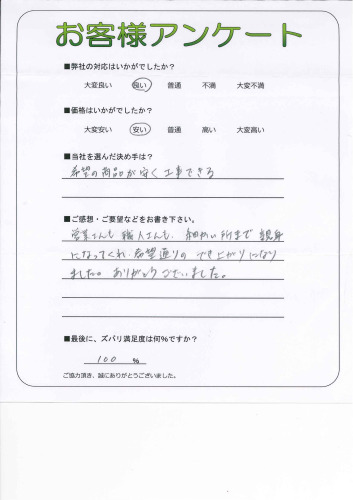 お客様アンケート
■弊社の対応はいかがでしたか？
大変良い 良い 普通 不満 大変不満
■価格はいかがでしたか？
大変安い 安い 普通 高い 大変高い
■当社を選んだ決め手は？
希望の商品が安く工事できる
■ご感想・ご要望などをお書き下さい。
営業さんも職人さんも、細かい所まで親身
になってくれ、希望通りのでき上がりになり
ました。ありがとうございました。
■最後に、ズバリ満足度は何%ですか？
100 %
ご協力頂き、誠にありがとうございました。